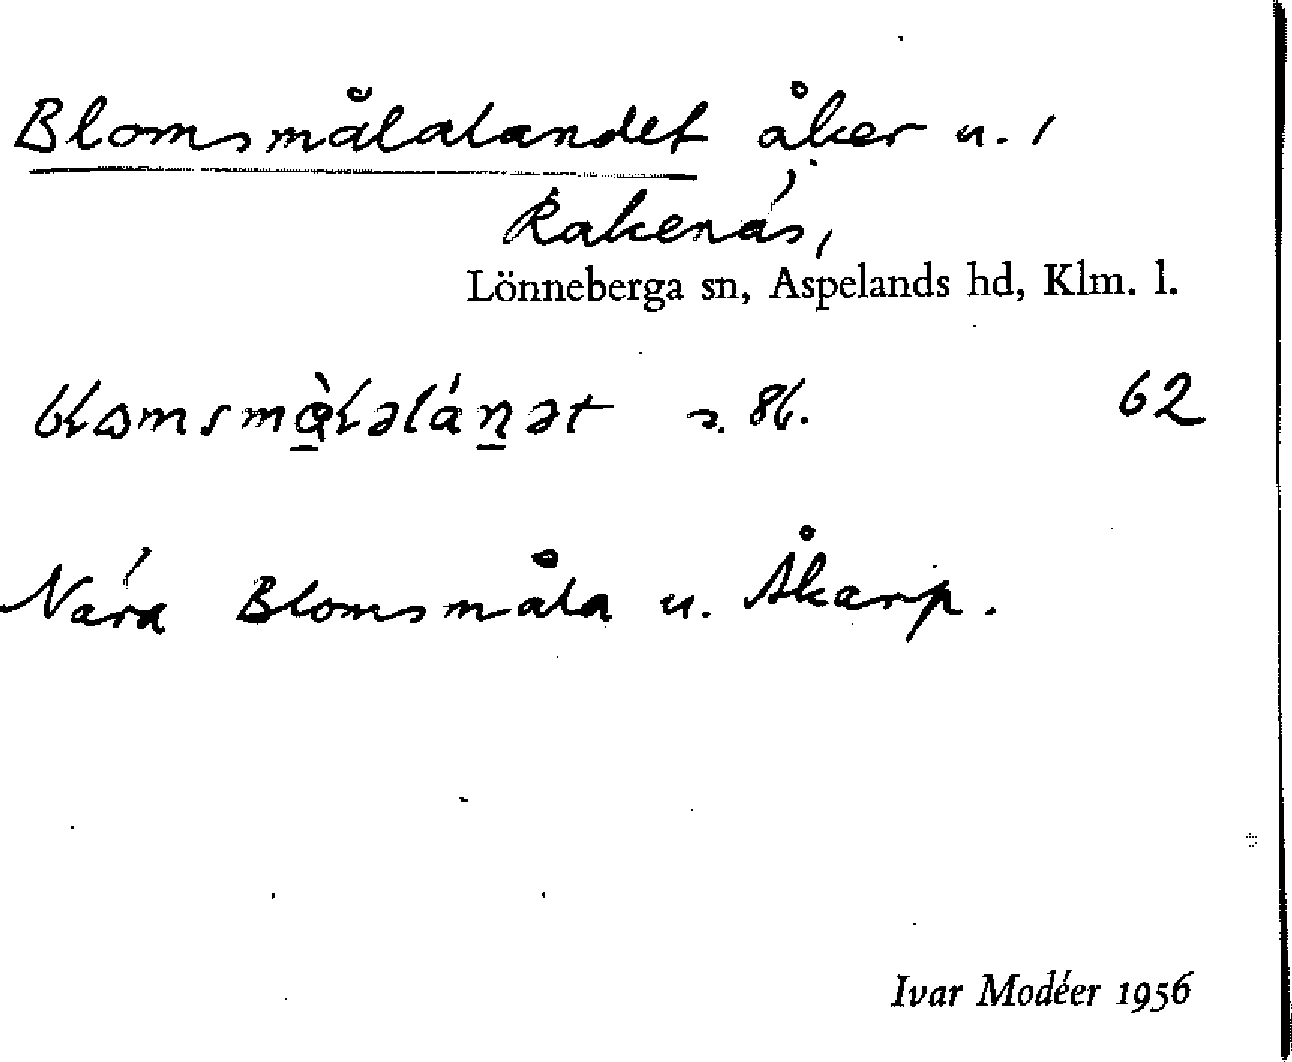 Blomsmålalandet åker u. 1
Rakenäs,
Lönneberga sn, Aspelands hd, Klm. l.
s. 86. 62
Nära Blomsmåla u. Åkarp.
Ivar Modéer 1956